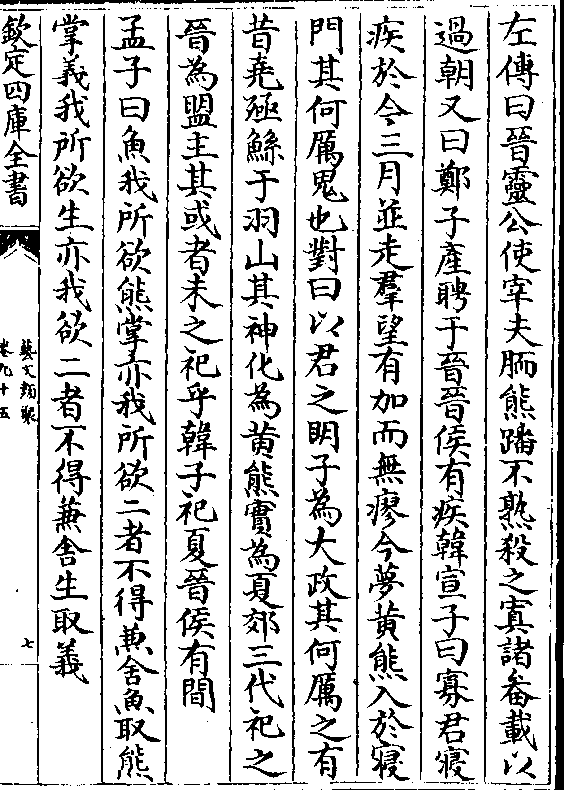 左傳曰晉靈公使宰夫胹熊蹯不熟殺之寘諸畚載以
過朝又曰鄭子產聘于晉晉侯有疾韓宣子曰寡君寢
疾於今三月並走羣望有加而無瘳今夢黃熊入於寢
門其何厲鬼也對曰以君之明子為大政其何厲之有
昔堯殛鯀于羽山其神化為黃熊實為夏郊三代祀之
晉為盟主其或者未之祀乎韓子祀夏晉侯有間
孟子曰魚我所欲熊掌亦我所欲二者不得兼舍魚取熊
掌義我所欲生亦我欲二者不得兼舍生取義
欽定四庫全書
藝文類聚
卷九十五
七